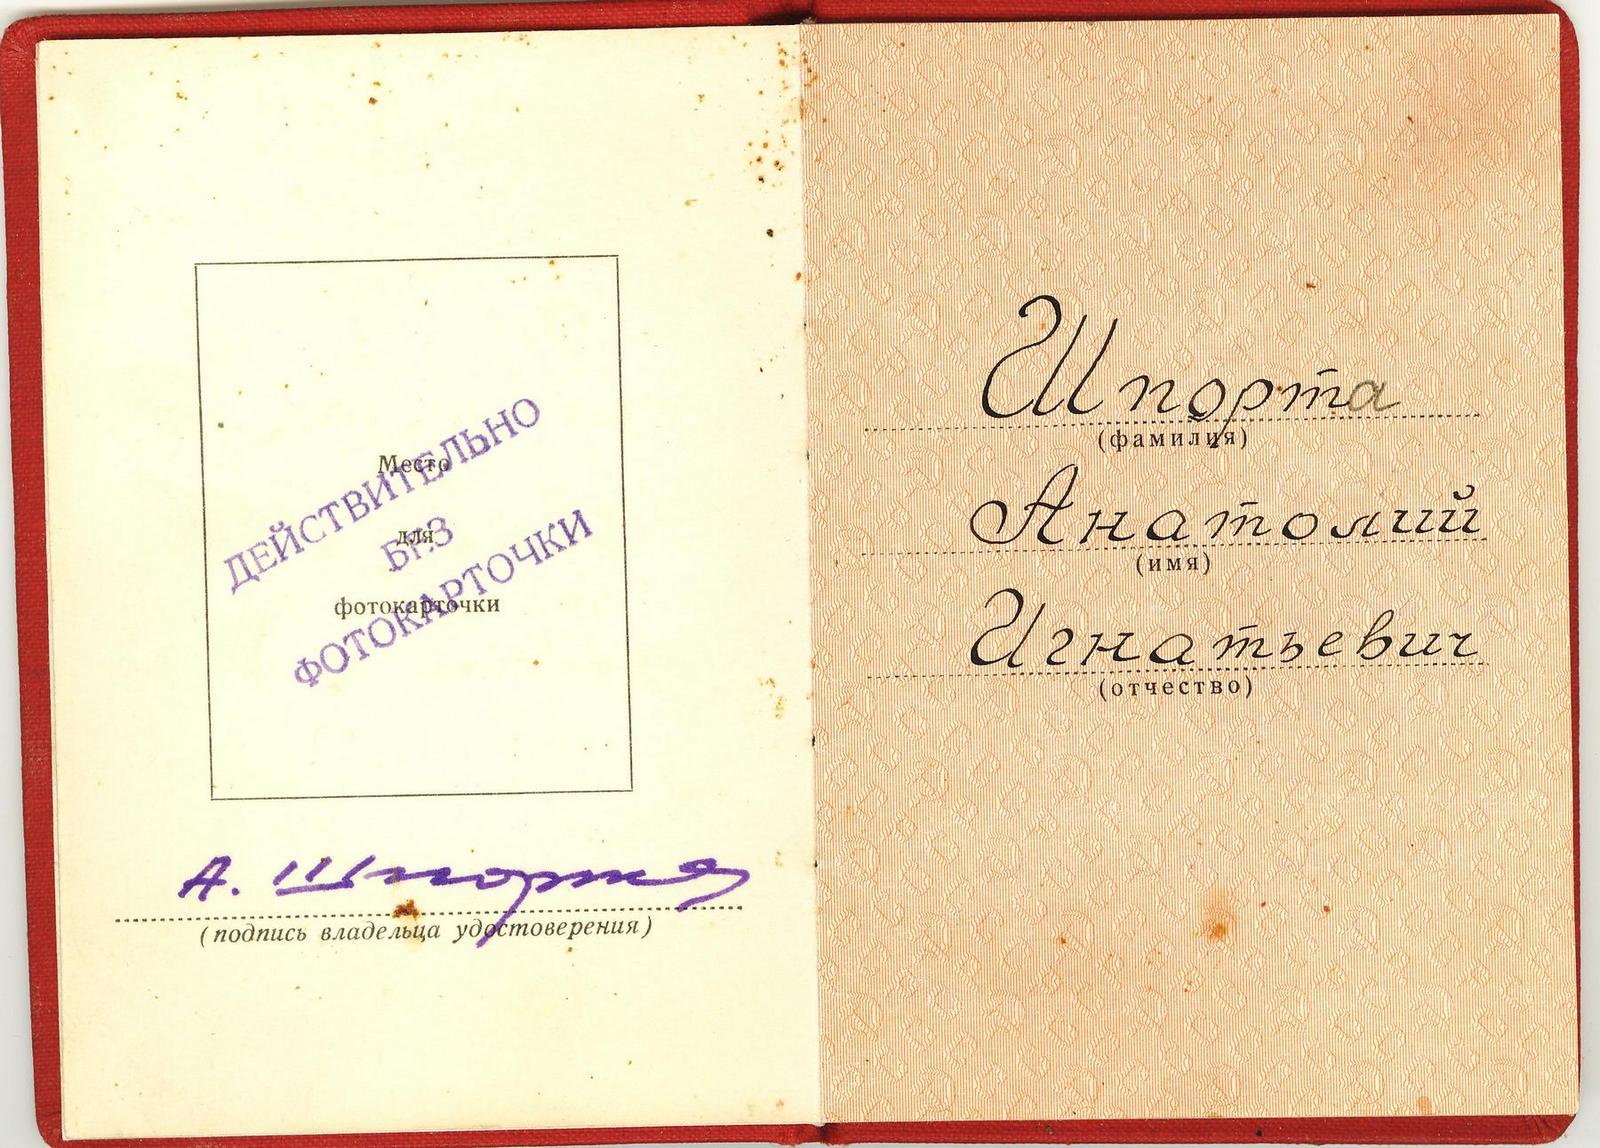 Место
для
фотокарточки
ДЕЙСТВИТЕЛЬНО
БЕЗ
ФОТОКАРТОЧКИ
А. Шпорта
(подпись владельца удостоверения)
Шпорта
(фамилия)
Анатолий
(имя)
Игнатьевич
(отчество)